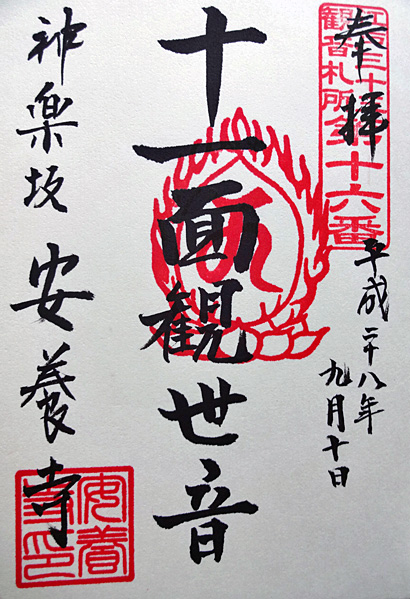 奉拝
江戸三十三
観音札所第十六番
平成二十八年
九月十日
十一面観世音
神楽坂 安養寺
安養
寺印